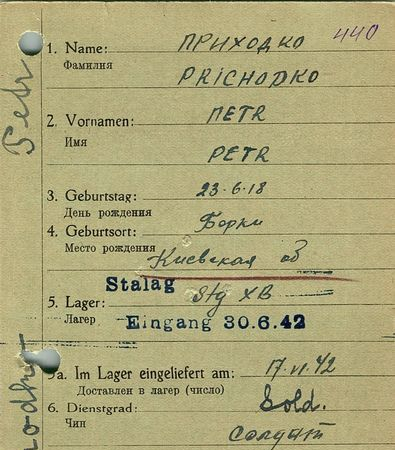 1. Name: ПРИХОДКО 440
Фамилия
PRICHODKO
2. Vornamen: ПЕТR
Имя
PETR
3. Geburtstag: 23·6·18
День рождения
4. Geburtsort: Борки
Место рождения
Киевская об
Stalag
5. Lager: Stg XB
Лагер
Eingang 30.6.42
5a. Im Lager eingeliefert am: 17.VI.42
Доставлен в лагер (число)
6. Dienstgrad: Sold.
Чин
Солдат
Petr